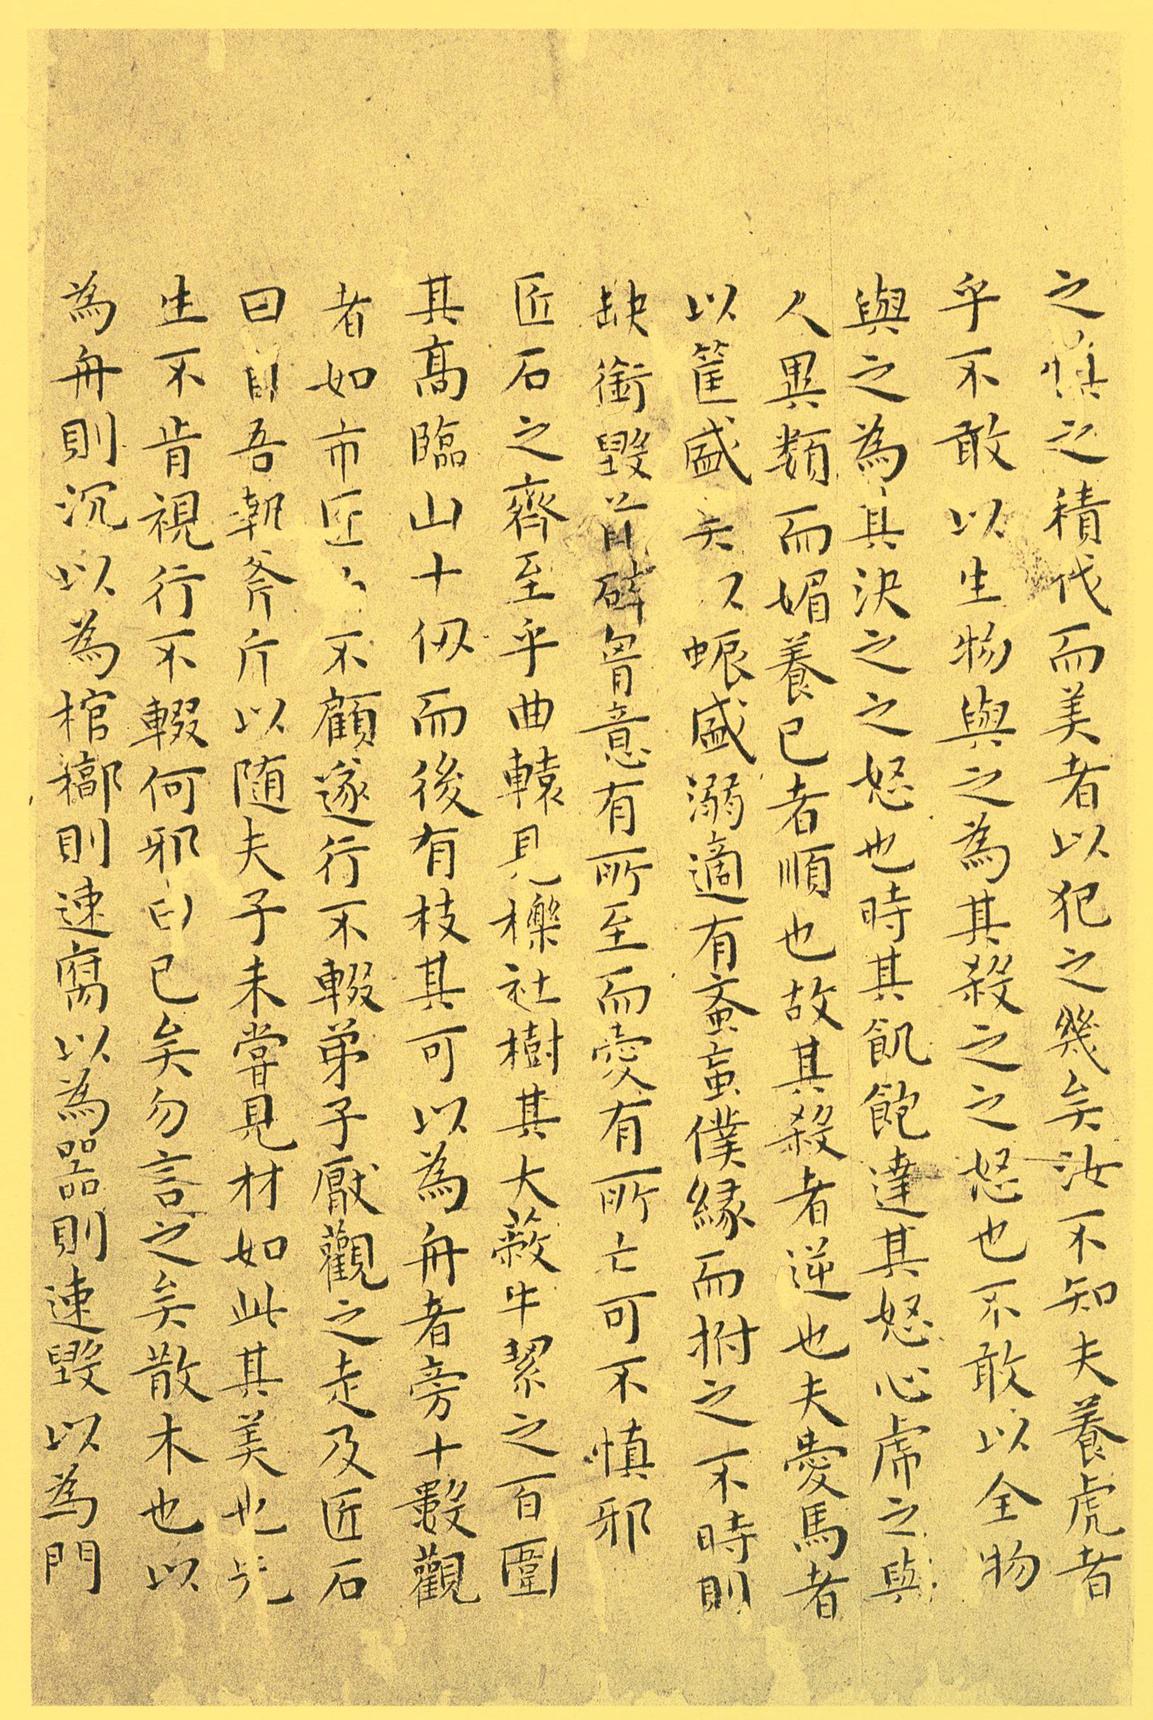 之慎之積伐而美者以犯之幾矣汝不知夫養虎者
乎不敢以生物與之為其殺之之怒也不敢以全物
與之為其決之之怒也時其飢飽達其怒心虎之與
人異類而媚養己者順也故其殺者逆也夫愛馬者
以筐盛矢以蜄盛溺適有蚉䖟僕緣而拊之不時則
缺銜毀首碎胷意有所至而愛有所亡可不慎邪
匠石之齊至乎曲轅見櫟社樹其大蔽牛絜之百圍
其高臨山十仭而後有枝其可以為舟者旁十數觀
者如市匠〻不顧遂行不輟弟子厭觀之走及匠石
曰自吾執斧斤以随夫子未甞見材如此其美也先
生不肯視行不輟何邪曰已矣勿言之矣散木也以
為舟則沉以為棺槨則速腐以為器則速毀以為門